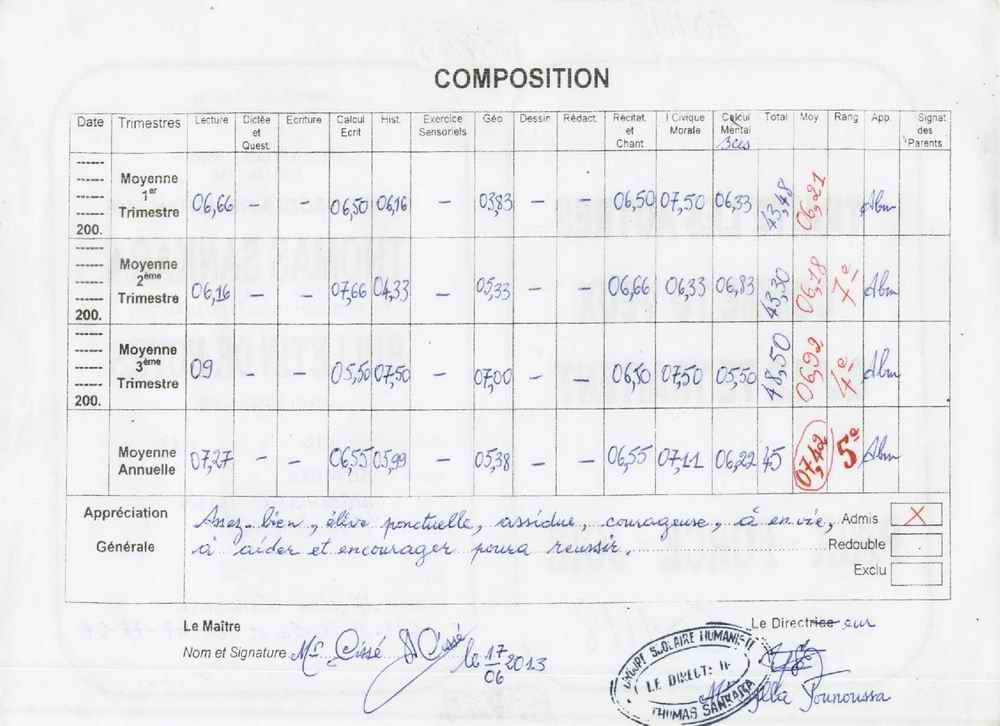 COMPOSITION
Date Trimestres Lecture Dictée et Quest. Ecriture Calcul Ecrit Hist. Exercice Sensoriels Géo Dessin Rédact. Récitat. et Chant I Civique Morale Calcul Mental Total Moy Rang App. Signat des Parents
Moyenne 1er Trimestre 06,66 - - 06,50 06,16 - 03,83 - - 06,50 07,50 06,33 43,48 06,21 Abm
200.
Moyenne 2ème Trimestre 06,16 - - 07,66 04,33 - 05,33 - - 06,66 06,33 06,83 43,30 06,18 7e Abm
200.
Moyenne 3ème Trimestre 09 - - 05,50 07,50 - 07,00 - - 06,50 07,50 05,50 48,50 06,92 4e Abm
200.
Moyenne Annuelle 07,27 - - 06,55 05,99 - 05,38 - - 06,55 07,11 06,22 45 07,42 5e Abm
Appréciation Générale
Assez-bien, élève ponctuelle, assidue, courageuse, à envie,
à aider et encourager poura reussir.
Admis X
Redouble
Exclu
Le Maître
Nom et Signature Mr Cissé Cissé le 17/06 2013
Le Directrice eur
GROUPE SCOLAIRE HUMANISTE
LE DIRECT:
THOMAS SANKARA
Younoussa